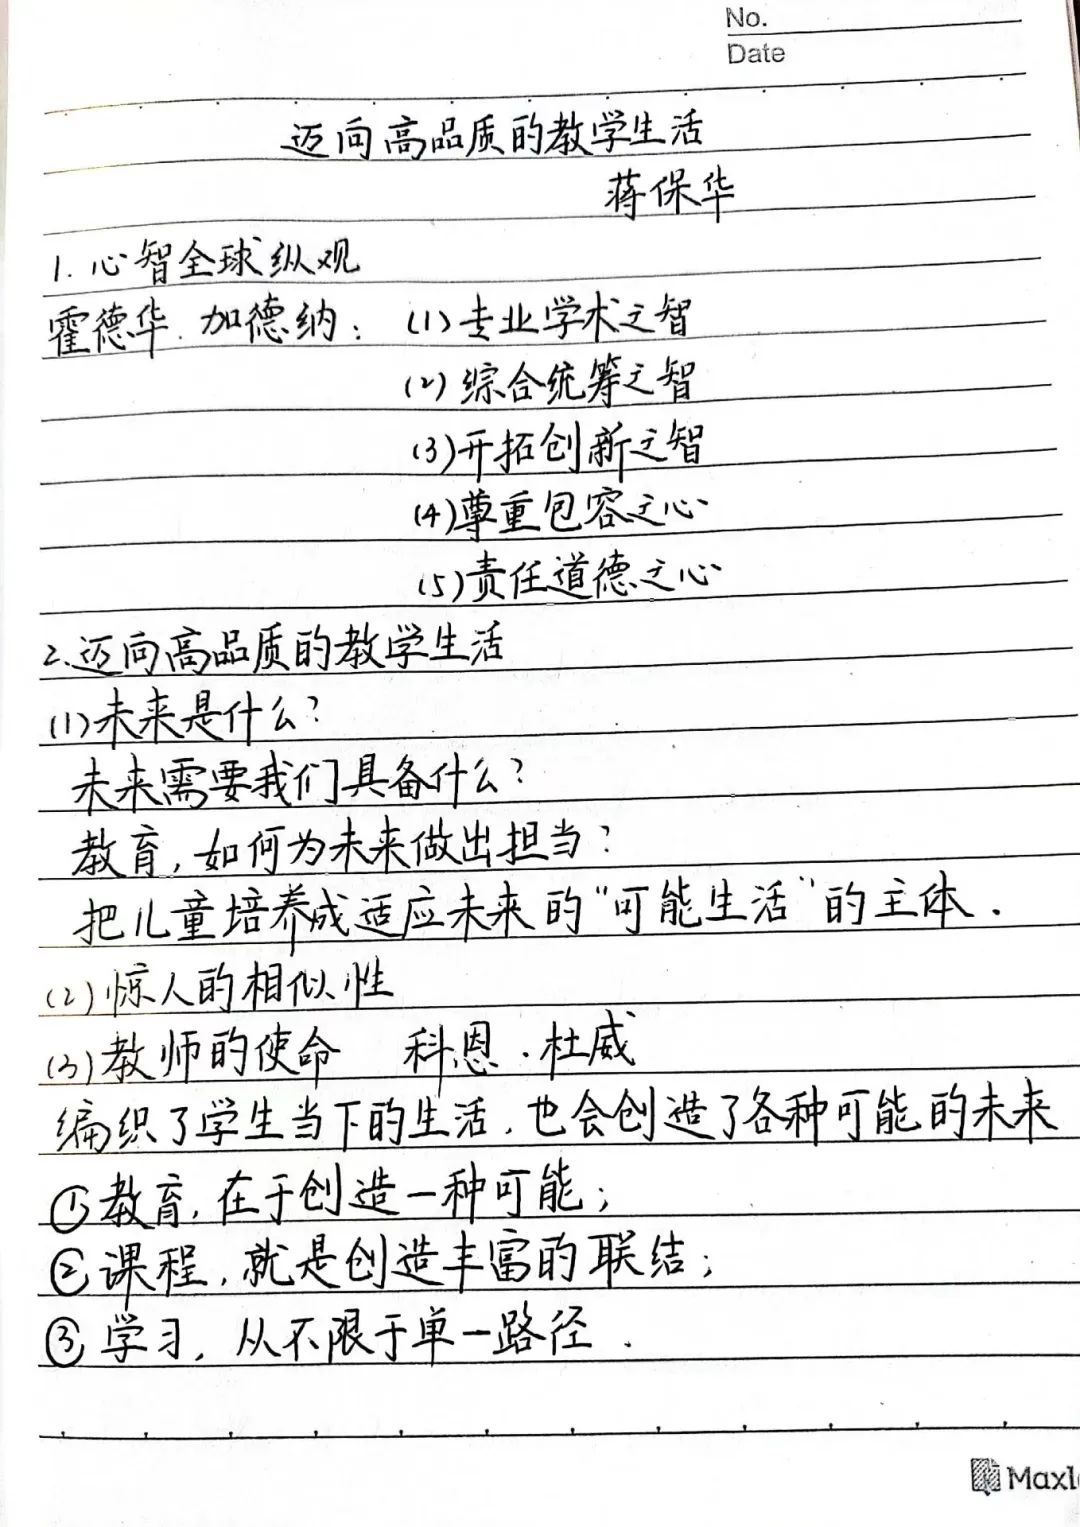 No.
Date
迈向高品质的教学生活
蒋保华
1. 心智全球纵观
霍德华. 加德纳: (1)专业学术之智
(2)综合统筹之智
(3)开拓创新之智
(4)尊重包容之心
(5)责任道德之心
2.迈向高品质的教学生活
(1)未来是什么?
未来需要我们具备什么?
教育,如何为未来做出担当?
把儿童培养成适应未来的"可能生活"的主体.
(2)惊人的相似性
(3)教师的使命 科恩.杜威
编织了学生当下的生活,也会创造了各种可能的未来
①教育,在于创造一种可能;
②课程,就是创造丰富的联结;
③学习,从不限于单一路径.